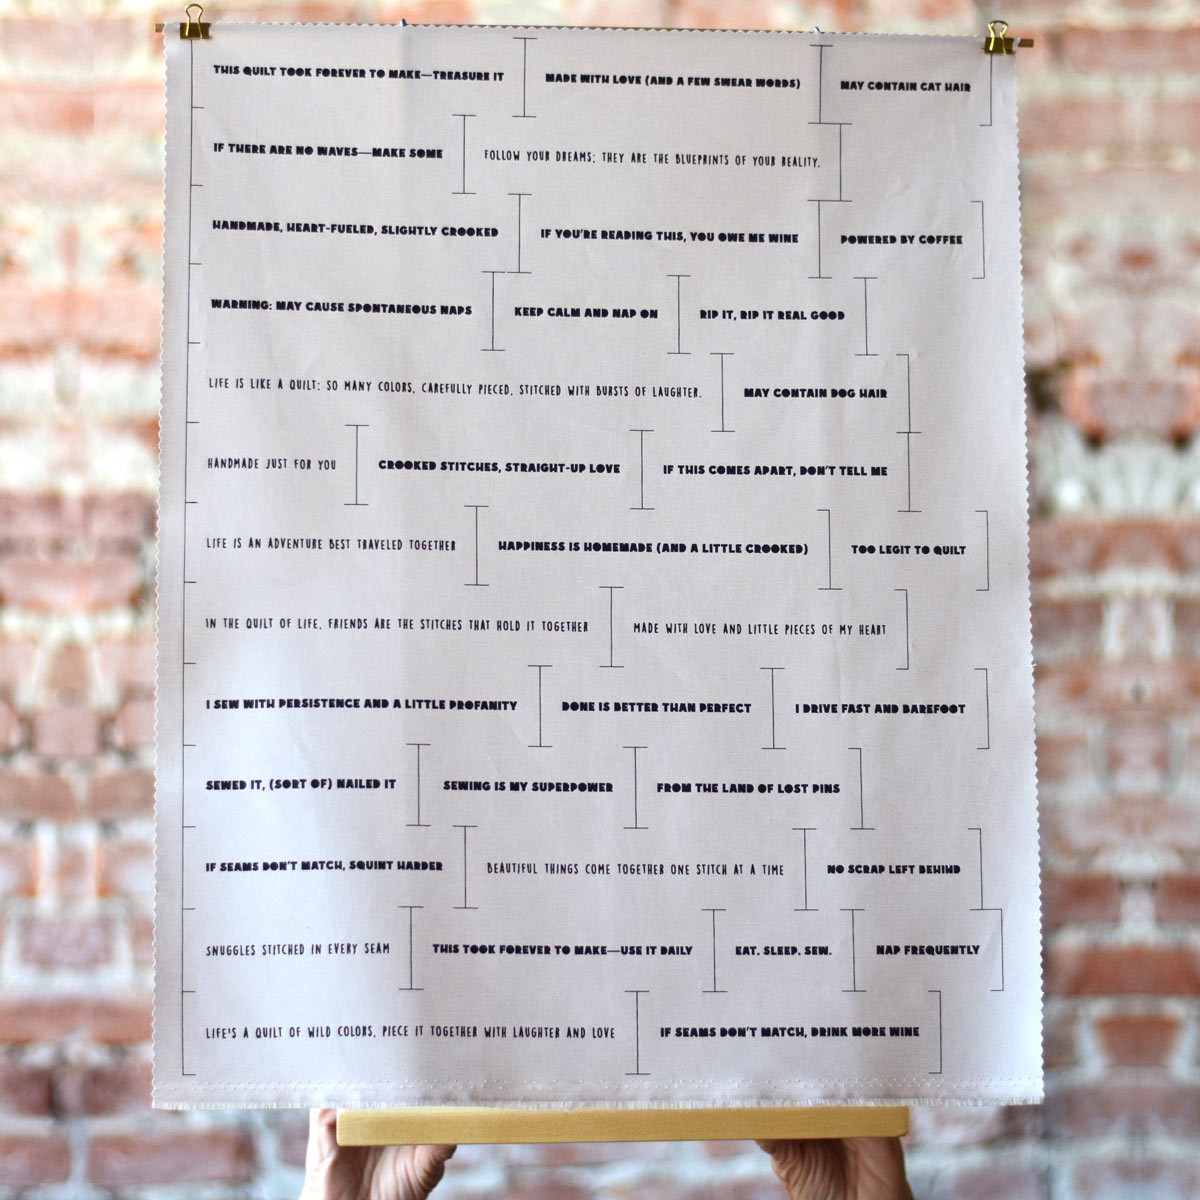 THIS QUILT TOOK FOREVER TO MAKE—TREASURE IT MADE WITH LOVE (AND A FEW SWEAR WORDS) MAY CONTAIN CAT HAIR
IF THERE ARE NO WAVES—MAKE SOME FOLLOW YOUR DREAMS; THEY ARE THE BLUEPRINTS OF YOUR REALITY.
HANDMADE, HEART-FUELED, SLIGHTLY CROOKED IF YOU'RE READING THIS, YOU OWE ME WINE POWERED BY COFFEE
WARNING: MAY CAUSE SPONTANEOUS NAPS KEEP CALM AND NAP ON RIP IT, RIP IT REAL GOOD
LIFE IS LIKE A QUILT: SO MANY COLORS, CAREFULLY PIECED, STITCHED WITH BURSTS OF LAUGHTER. MAY CONTAIN DOG HAIR
HANDMADE JUST FOR YOU CROOKED STITCHES, STRAIGHT-UP LOVE IF THIS COMES APART, DON'T TELL ME
LIFE IS AN ADVENTURE BEST TRAVELED TOGETHER HAPPINESS IS HOMEMADE (AND A LITTLE CROOKED) TOO LEGIT TO QUILT
IN THE QUILT OF LIFE, FRIENDS ARE THE STITCHES THAT HOLD IT TOGETHER MADE WITH LOVE AND LITTLE PIECES OF MY HEART
I SEW WITH PERSISTENCE AND A LITTLE PROFANITY DONE IS BETTER THAN PERFECT I DRIVE FAST AND BAREFOOT
SEWED IT, (SORT OF) NAILED IT SEWING IS MY SUPERPOWER FROM THE LAND OF LOST PINS
IF SEAMS DON'T MATCH, SQUINT HARDER BEAUTIFUL THINGS COME TOGETHER ONE STITCH AT A TIME NO SCRAP LEFT BEHIND
SNUGGLES STITCHED IN EVERY SEAM THIS TOOK FOREVER TO MAKE—USE IT DAILY EAT. SLEEP. SEW. NAP FREQUENTLY
LIFE'S A QUILT OF WILD COLORS, PIECE IT TOGETHER WITH LAUGHTER AND LOVE IF SEAMS DON'T MATCH, DRINK MORE WINE